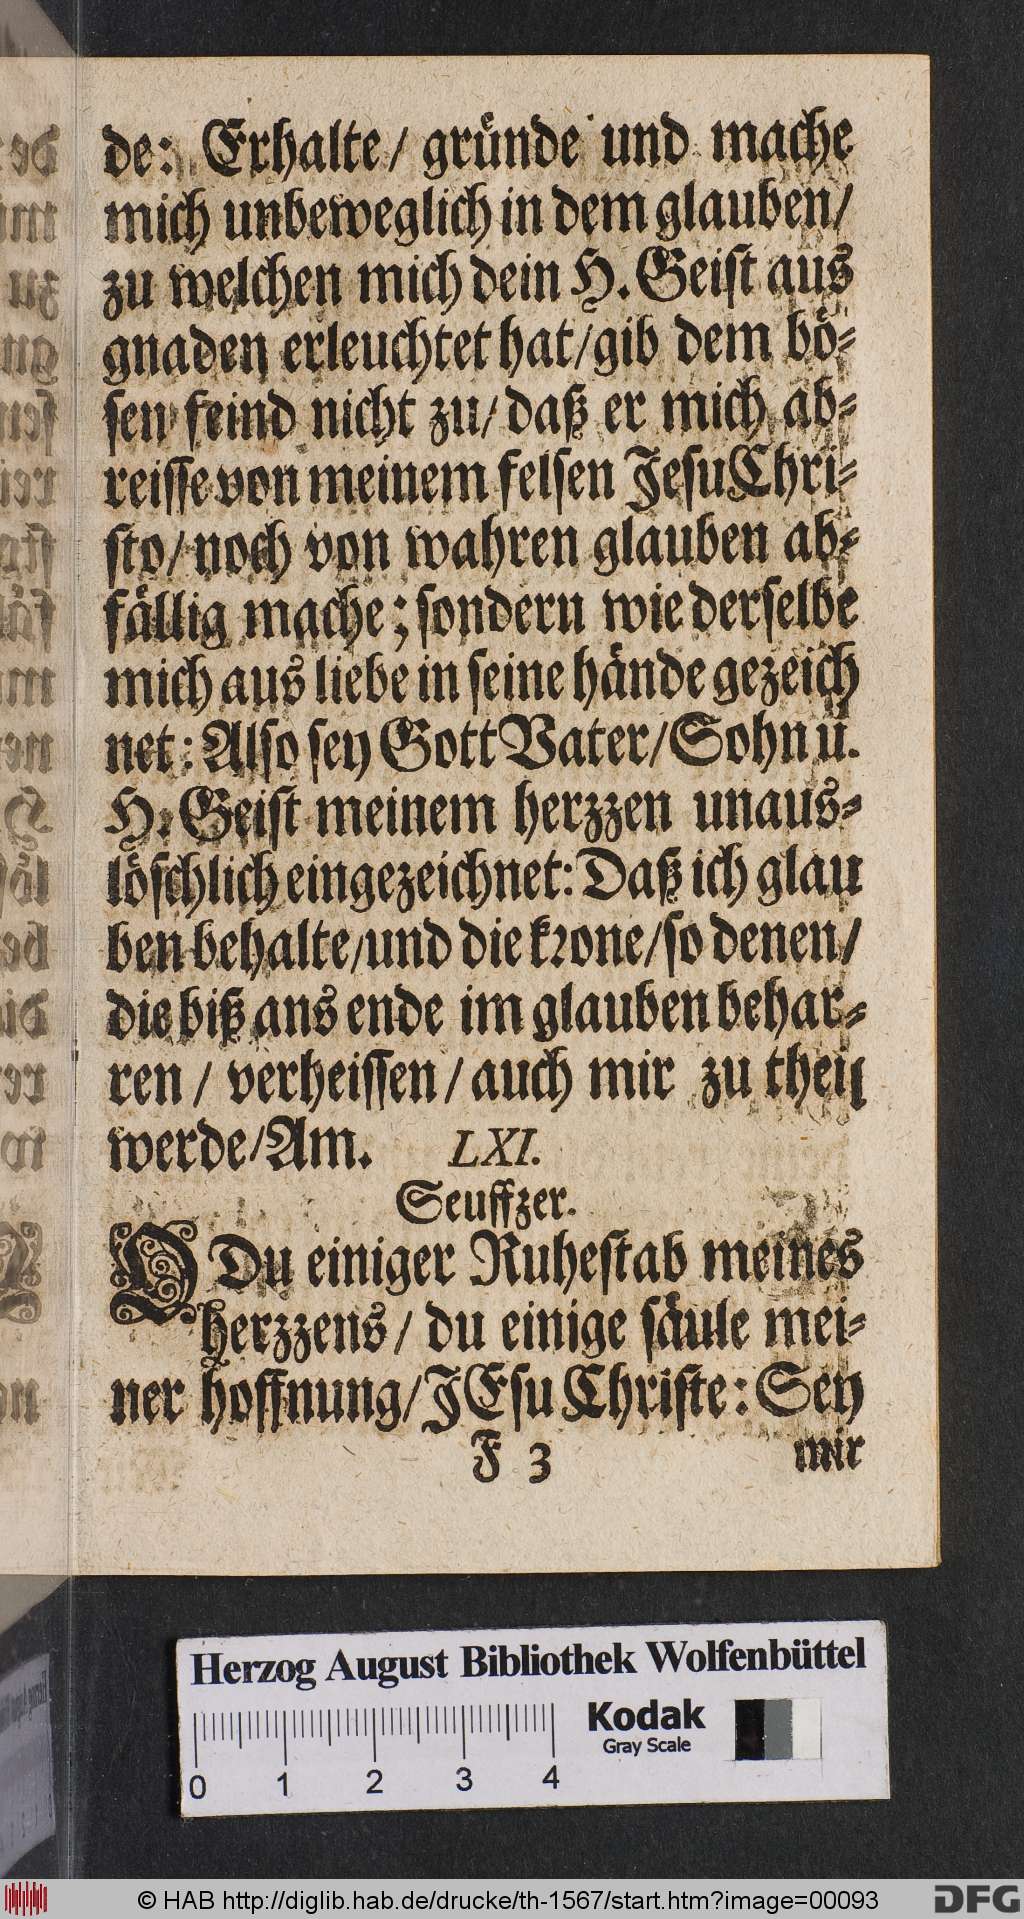 de: Erhalte/ gründe und mache
mich unbeweglich in dem glauben/
zu welchen mich dein H. Geist aus
gnaden erleuchtet hat/gib dem bö-
sen feind nicht zu/ daß er mich ab-
reisse von meinem felsen Jesu Chri-
sto/ noch von wahren glauben ab-
fällig mache; sondern wie derselbe
mich aus liebe in seine hände gezeich
net: Also sey Gott Vater/Sohn u.
H. Geist meinem herzzen unaus-
löschlich eingezeichnet: Daß ich glau
ben behalte/und die krone/so denen/
die biß ans ende im glauben behar-
ren / verheissen/ auch mir zu theil
werde/Am. LXI.
Seuffzer.
O Du einiger Ruhestab meines
herzzens/ du einige säule mei-
ner hoffnung/JEsu Christe: Sey
F 3 mir
Herzog August Bibliothek Wolfenbüttel
Kodak
Gray Scale
0 1 2 3 4
© HAB http://diglib.hab.de/drucke/th-1567/start.htm?image=00093 DFG